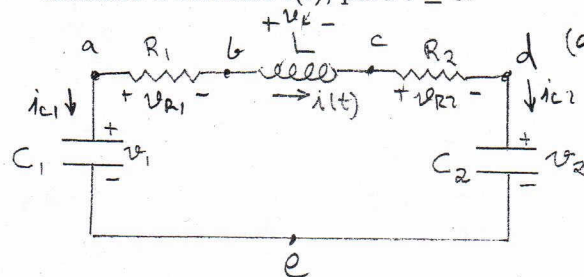 + v_L -
a R₁ b L c R₂ d (a
i_C1 ↓ + v_R1 - → i(t) + v_R2 - ↓ i_C2
C₁ + v₁ - C₂ + v₂ -
e